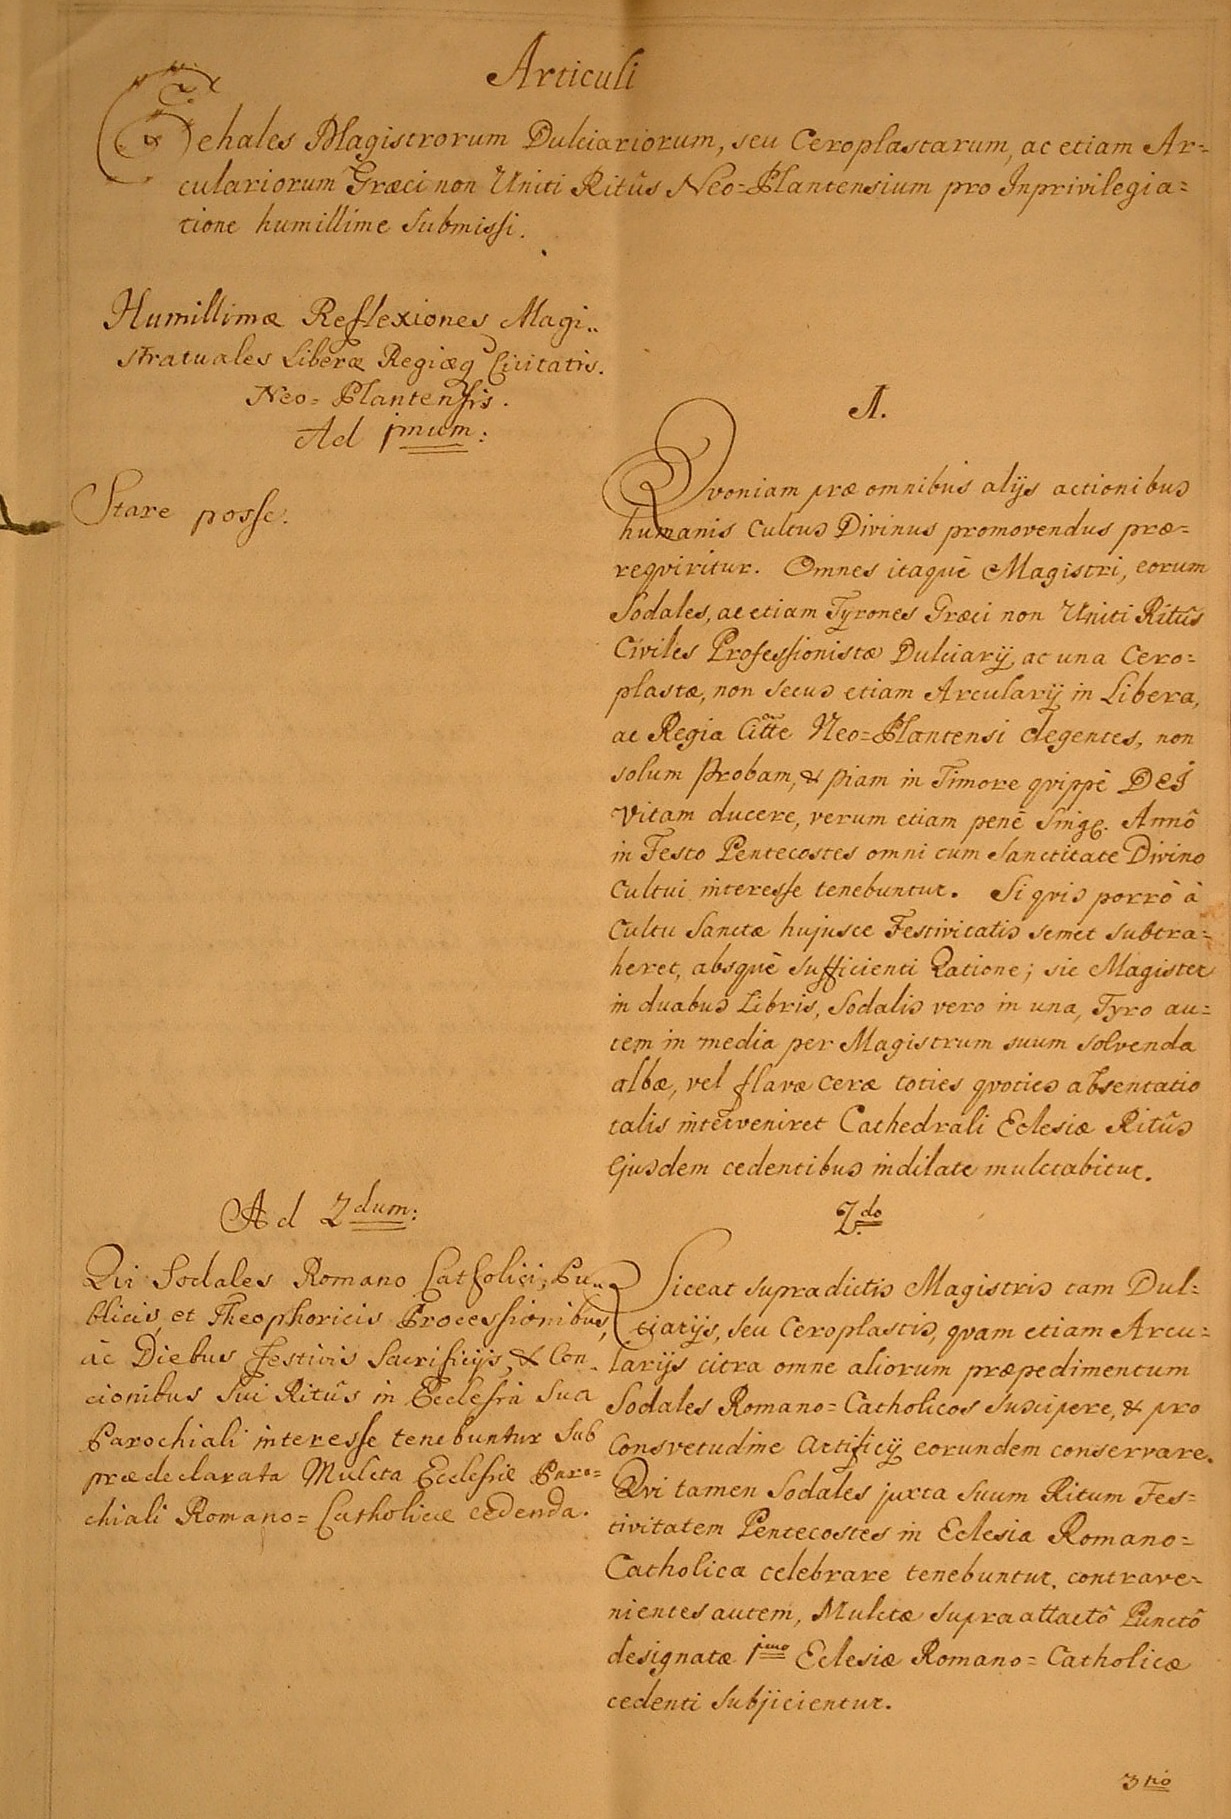 Articuli
Cehales Magistrorum Dulciariorum, seu Ceroplastarum, ac etiam Ar=
culariorum Græci non Uniti Ritûs Neo=Plantensium pro Inprivilegia=
tione humillime submissi.
Humillimæ Reflexiones Magi„
stratuales Liberæ Regiæq Civitatis.
Neo=Plantensis.
Ad 1mum:
Stare posse.
A.
Qvoniam præ omnibus alijs actionibus
humanis Cultus Divinus promovendus præ=
reqviritur. Omnes itaquè Magistri, eorum
Sodales, ac etiam Tyrones Græci non Uniti Ritûs
Civiles Professionistæ Dulciarij, ac una Cero=
plastæ, non secus etiam Arcularij in Libera,
ac Regia Citte Neo=Plantensi degentes, non
solum Probam, & piam in Timore qvippè DEI
Vitam ducere, verum etiam penè Sing. Annô
in Festo Pentecostes omni cum Sanctitate Divino
Cultui interesse tenebuntur. Si qvis porrò à
Cultu Sanctæ hujusce Festivitatis semet subtra=
heret, absquè sufficienti Ratione; sic Magister
in duabus Libris, Sodalis vero in una, Tyro au=
tem in media per Magistrum suum solvenda
albæ, vel flavæ ceræ toties qvoties absentatio
talis interveniret Cathedrali Eclesiæ Ritûs
Ejusdem cedentibus indilate mulctabitur.
Ad 2dum:
Qui Sodales Romano Catholici, Pu„
blicis, et Theophoricis Processionibus,
ac Diebus festivis Sacrificijs, & Con„
cionibus sui Ritûs in Ecclesia sua
Parochiali interesse tenebuntur sub
prædeclarata Mulcta Ecclesiæ Paro=
chiali Romano=Catholicæ cedenda.
2do
Liceat supradictis Magistris tam Dul=
ciarijs, seu Ceroplastis, qvam etiam Arcu=
larijs citra omne aliorum præpedimentum
Sodales Romano=Catholicos suscipere, & pro
Consvetudine Artificij eorundem conservare.
Qvi tamen Sodales juxta suum Ritum Fes=
tivitatem Pentecostes in Eclesia Romano=
Catholica celebrare tenebuntur, contrave=
nientes autem, Mulctæ supra attactô Punctô
designatæ 1mo Eclesiæ Romano=Catholicæ
cedenti subjicientur.
3tiô